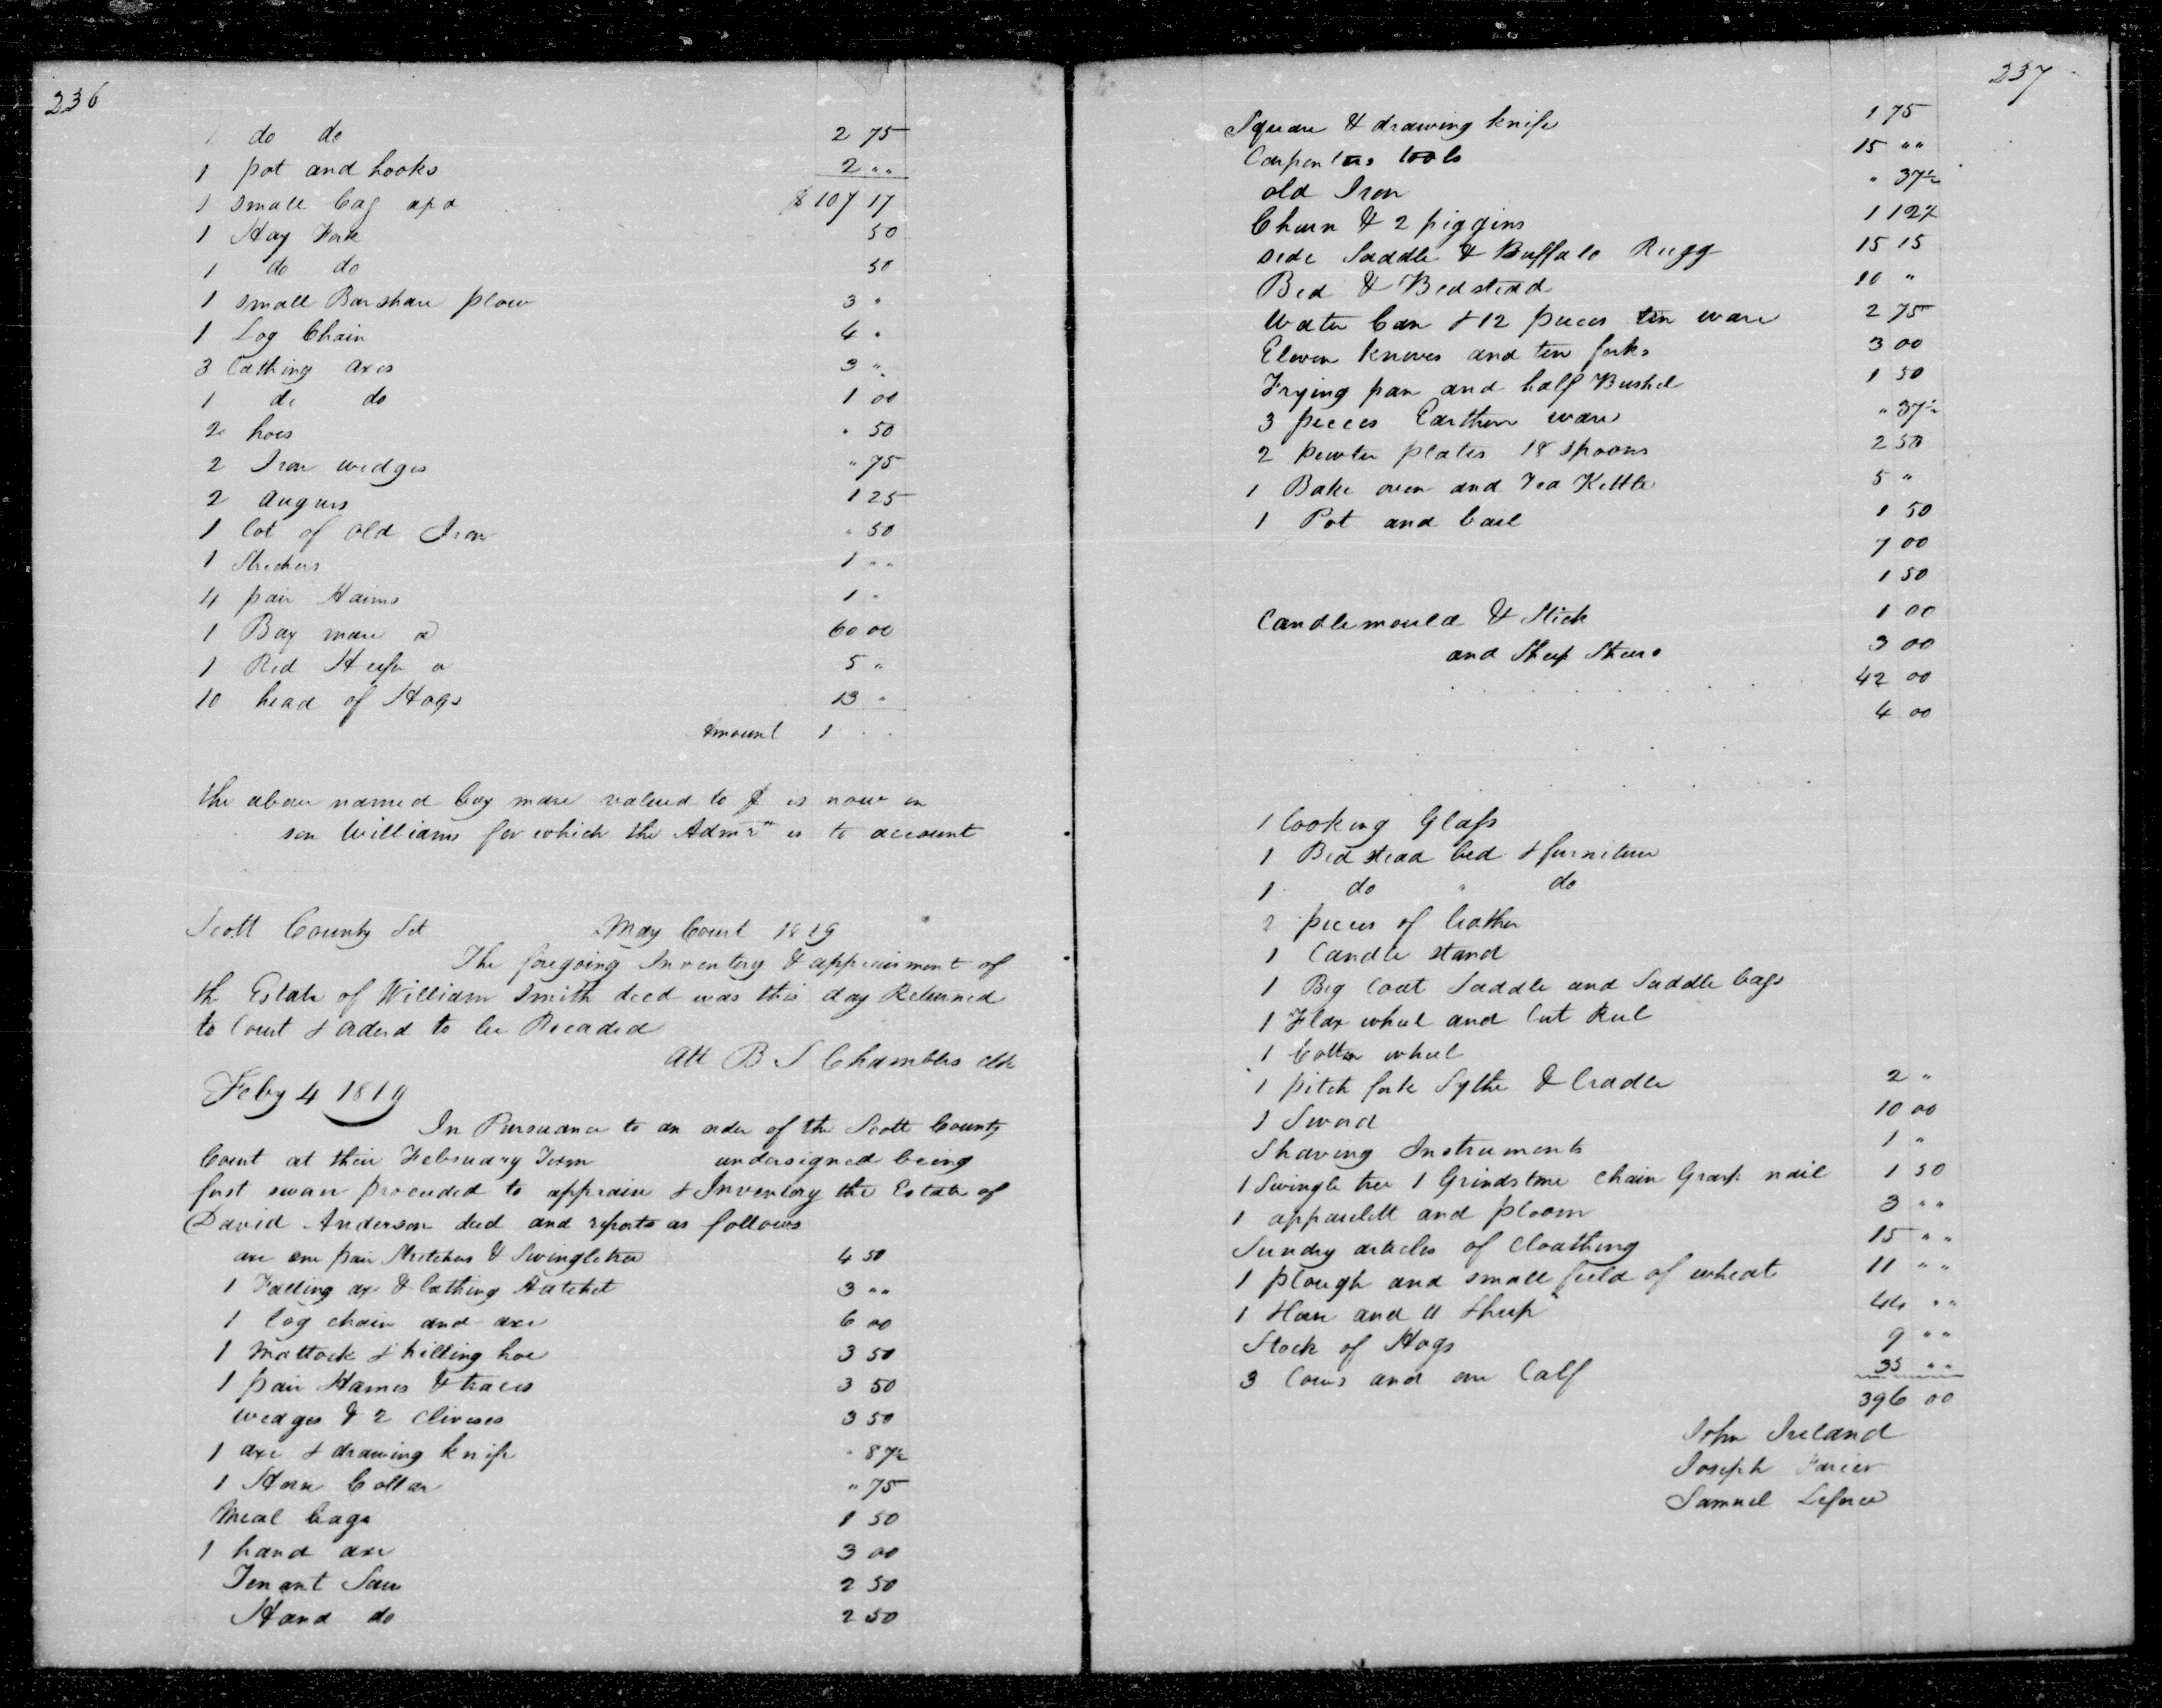 236
1 do do 2 75
1 pot and hooks 2 " "
1 small bag $107 17
1 Hay Fork 50
1 do do 50
1 small Barshare plow 3 "
1 Log Chain 4 "
3 Cathing axes 3 "
1 do do 1 00
2 hoes " 50
2 Iron wedges " 75
2 augurs 1 25
1 lot of old Iron " 50
1 Strechers 1 " "
4 pair Haims 1 "
1 Bay mare a 60 00
1 Red Heifer a 5 "
10 head of Hogs 13 "
Amount 1
the above named bay mare valued to $ is now in
son Williams for which the Admr is to account
Scott County Sct May Court 1819
The foregoing Inventory & appraisment of
th Estate of William Smith decd was this day Returned
to Court & orderd to be Recorded
Att B S Chambers clk
Feby 4 1819
In Pursuance to an order of the Scott County
Court at their February Term undersigned being
first sworn proceeded to appraise & Inventory the Estate of
David Anderson decd and reports as follows
axe one pair Stretchers & Swingletree 4 50
1 Falling axe & lathing Hatchet 3 " "
1 log chain and axe 6 00
1 Mattock & hilling hoe 3 50
1 pair Hames & traces 3 50
Wedges & 2 Clivises 3 50
1 axe & drawing knife " 87½
1 Horse Collar " 75
Meal bags 1 50
1 hand axe 3 00
Tenant Saw 2 50
Hand do 2 50
237
Square & drawing knife 1 75
Carpenters tools 15 " "
old Iron " 37½
Churn & 2 piggins 1 12½
side Saddle & Buffalo Rugg 15 15
Bed & Bedstead 10 "
Water Can & 12 pieces tin ware 2 75
Eleven knives and ten forks 3 00
Frying pan and half Bushel 1 50
3 pieces Earthern ware " 37½
2 pewter plates 18 spoons 2 50
1 Bake oven and Tea Kettle 5 "
1 Pot and bail 1 50
7 00
1 50
Candlemould & Stick 1 00
and Sheep Shears 3 00
42 00
4 00
1 looking Glass
1 Bed stead bed & furniture
1 do " do
2 pieces of leather
1 Candle stand
1 Big Coat Saddle and Saddle bags
1 Flax wheel and Cut Reel
1 Cotton wheel
1 pitch fork Sythe & Cradle 2 "
1 Sword 10 00
Shaving Instruments 1 "
1 Swingle tree 1 Grindstone chain Grasp nail 1 50
1 appaulett and ploom 3 " "
Sundry articles of Cloathing 15 " "
1 plough and small field of wheat 11 " "
1 Horse and 11 Sheep 44 " "
Stock of Hogs 9 " "
3 Cows and one Calf 35 " "
396 00
John Ireland
Joseph
Samuel Leforce